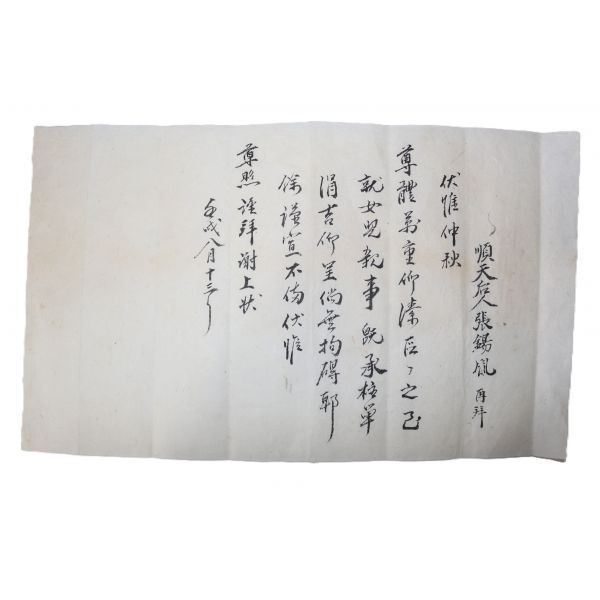 順天后人張錫胤 再拜
伏惟仲秋
尊體萬重仰溸區〻之至
就女兒親事旣承柱單
涓吉仰呈倘無拘碍耶
餘謹宣不備伏惟
尊照謹拜謝上狀
壬戌八月十三日